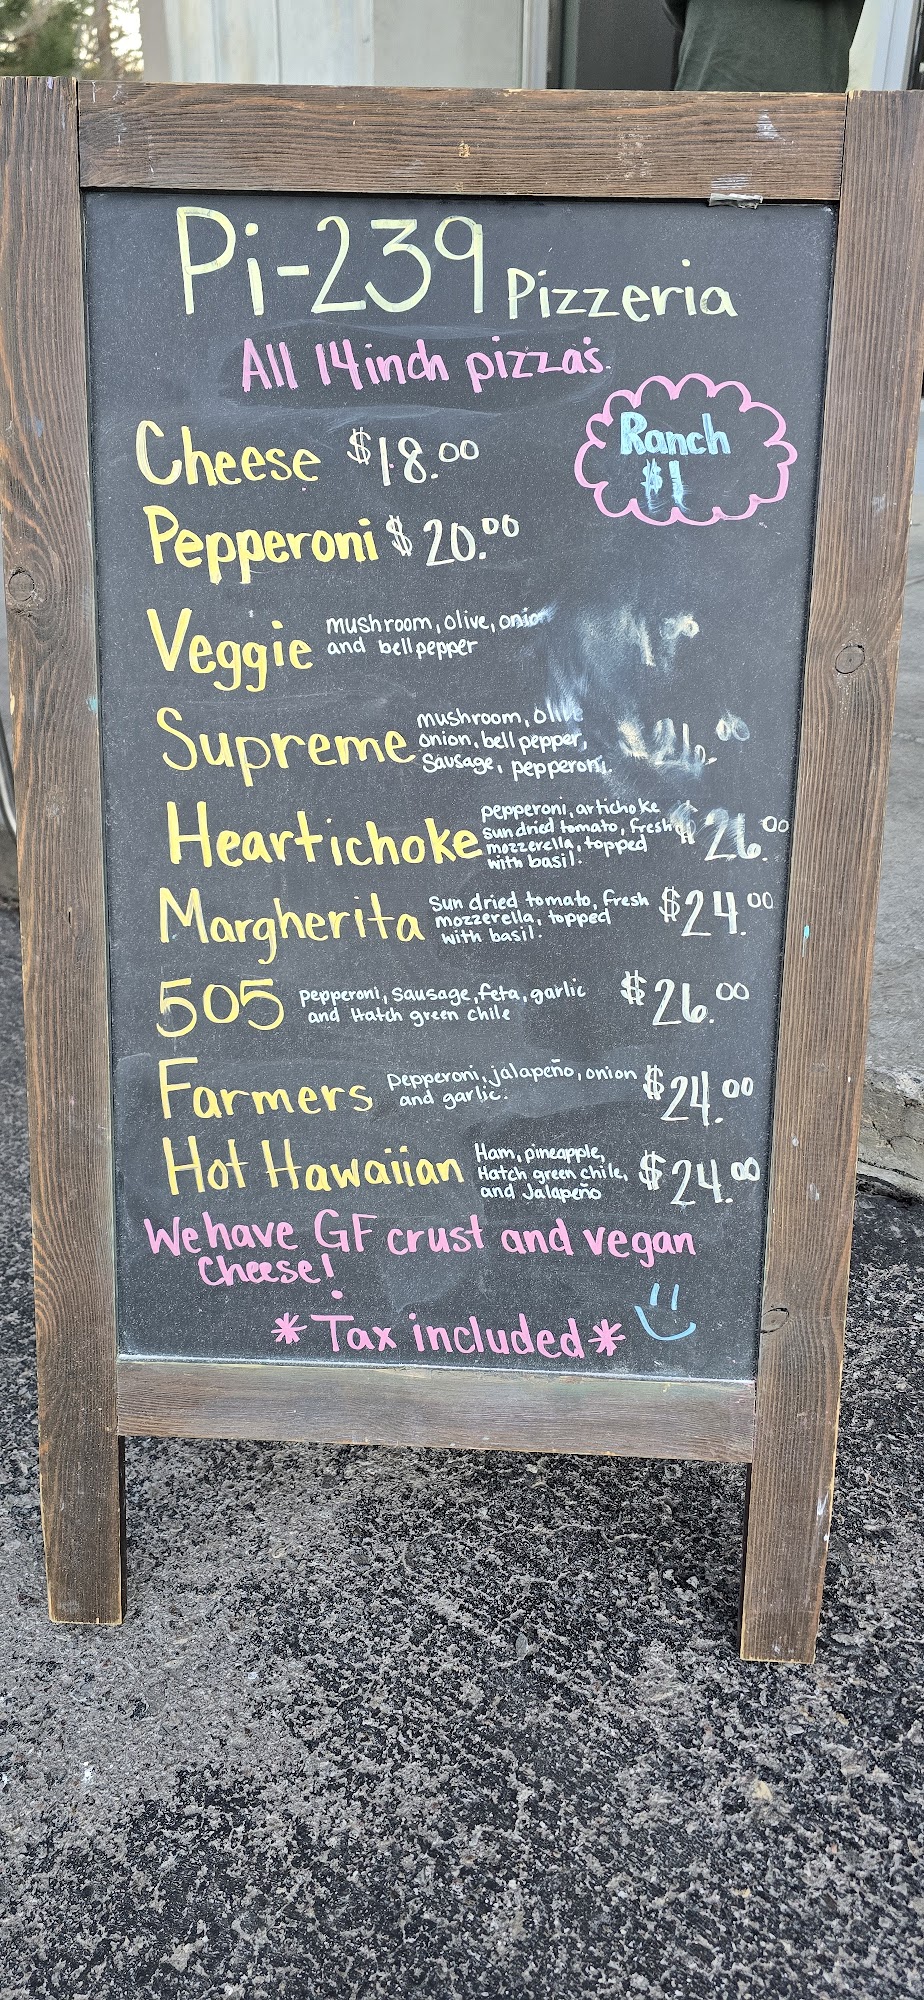 Pi-239 Pizzeria
All 14inch pizza's
Ranch
$1
Cheese $18.00
Pepperoni $20.00
Veggie mushroom, olive, onion
and bell pepper
Supreme mushroom, olive
onion, bell pepper,
Sausage, pepperoni. $26.00
Heartichoke pepperoni, artichoke
sundried tomato, fresh
mozzerella, topped
with basil. $26.00
Margherita Sun dried tomato, fresh
mozzerella, topped
with basil. $24.00
505 pepperoni, sausage, feta, garlic
and Hatch green chile $26.00
Farmers Pepperoni, jalapeño, onion
and garlic. $24.00
Hot Hawaiian Ham, pineapple,
Hatch green chile,
and Jalapeño $24.00
We have GF crust and vegan
Cheese!
*Tax included*